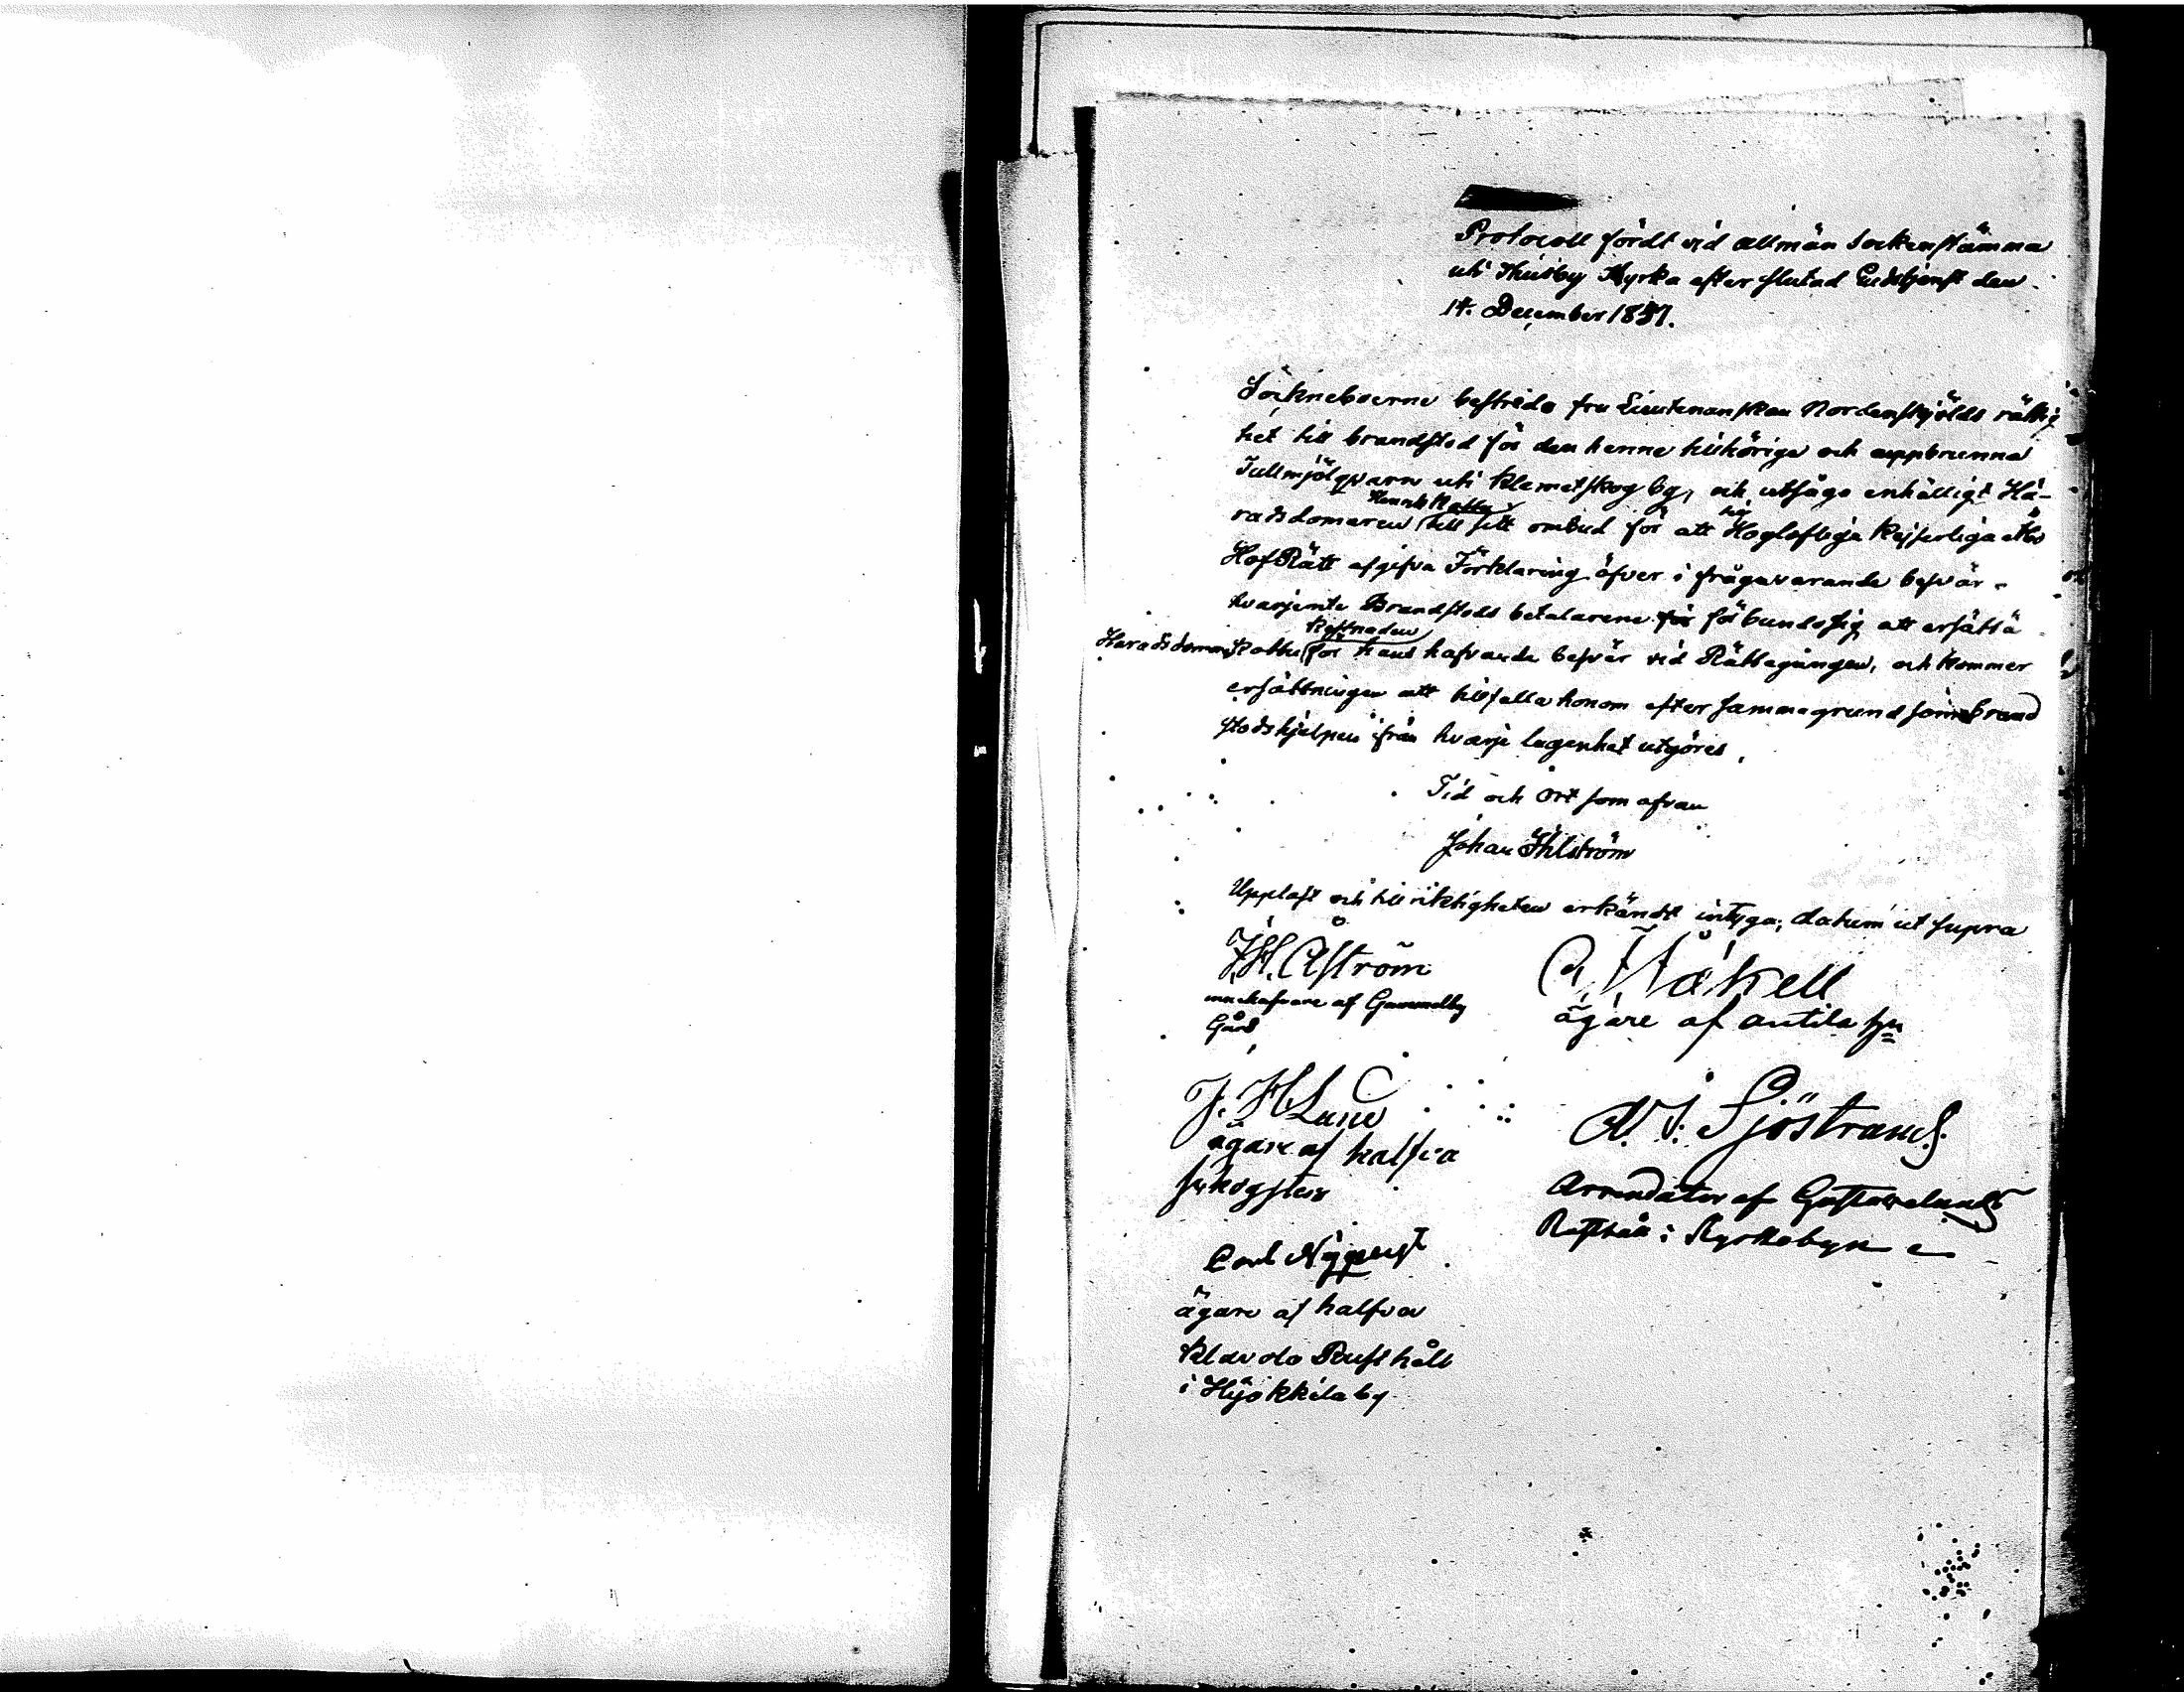 Protocoll fördt vid allmän Sockenstämma
uti Husby Kyrka efter slutad Gudstjenst den
14. December 1851.
Sockneboerne bestrida fru Lieutenantskan Nordenskjölds rättig
het till brandstod för den henne tillhöriga och uppbrunna
Tullmjölqvarn uti Klemetskog by, och utsågo enhälligt Hä-
radsdomaren Henrik Rabbe till sitt ombud för att Högloflige Kejserliga Åbo
HofRätt afgifva Förklaring öfver i frågavarande besvär.
hvarjemte Brandstods betalarene förbundo sig att ersätta
Häradsdomaren Rabbe kostnaden för hans hafvande besvär vid Rättegången, och kommer
ersättningen att tillfalla honom efter samma grund som brand
stodshjelpen från hvarje lägenhet utgöres.
Tid och Ort som ofvan
Johan Ihlström
Uppläst och till riktigheten erkändt intyga, datum ut supra
J. H. Åström
innehafvare af Gammelby
Gård
ägare af Antila
J. H. Lund
ägare af halfva
Skogster
A. J. Sjöstrand.
Arrendator af Gustavelunds
Rusthåll i Kyrkobyn
Carl Nyqvist
ägare af halfva
Klavola Rusthåll
i Hyökkilä by